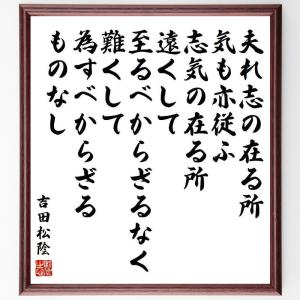 夫れ志の在る所
気も亦従ふ
志気の在る所
遠くして
至るべからざるなく
難くして
為すべからざる
ものなし
吉田松陰